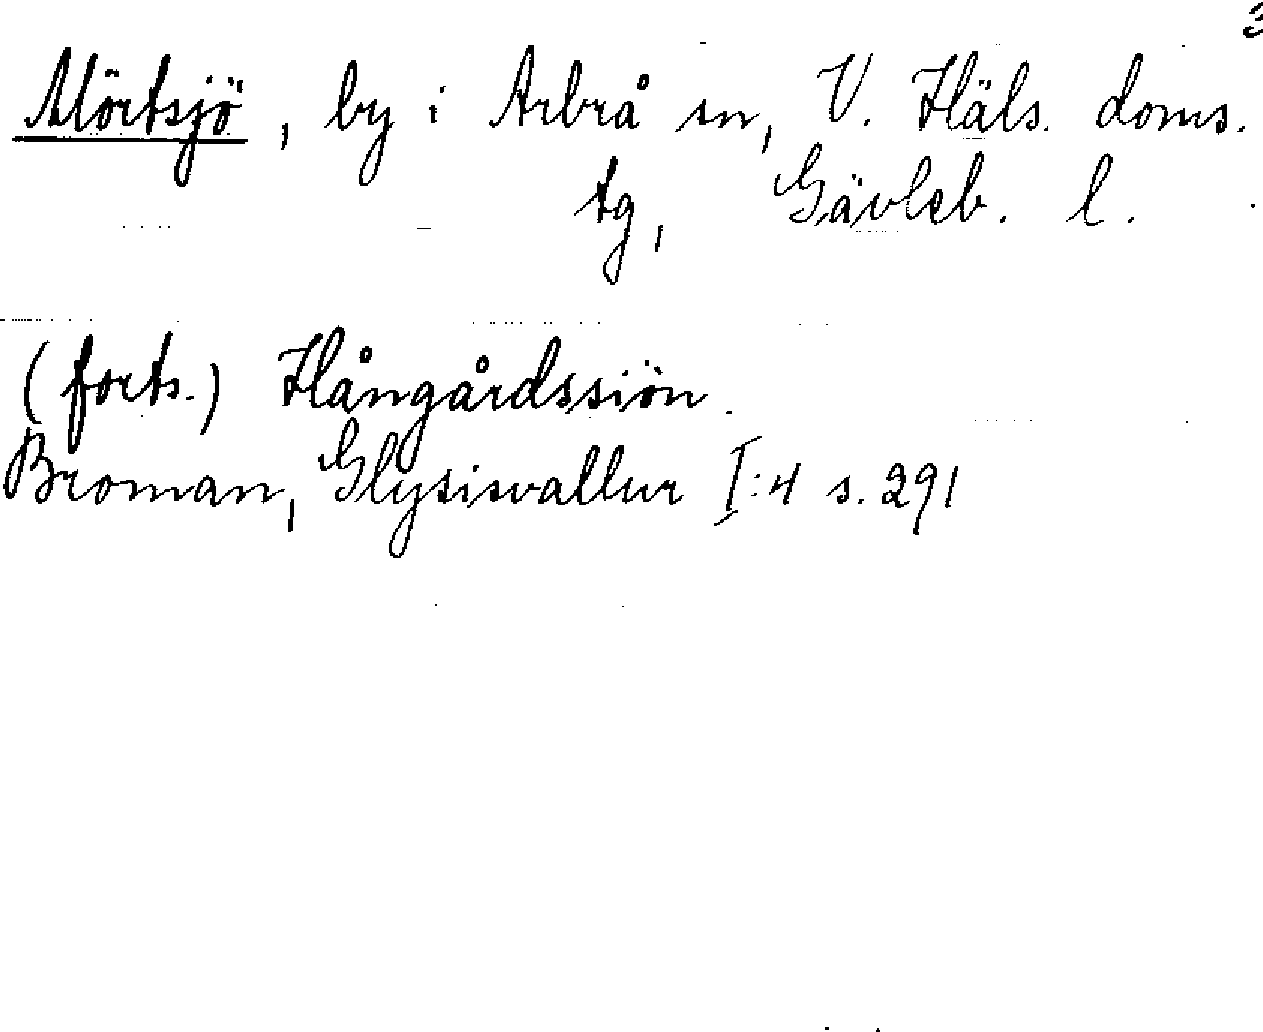 3
Mörtsjö, by i Arbrå sn, V. Häls. doms.
tg, Gävleb. l.
(forts.) Hångårdssiön.
Broman, Glysisvallur I:4 s. 291